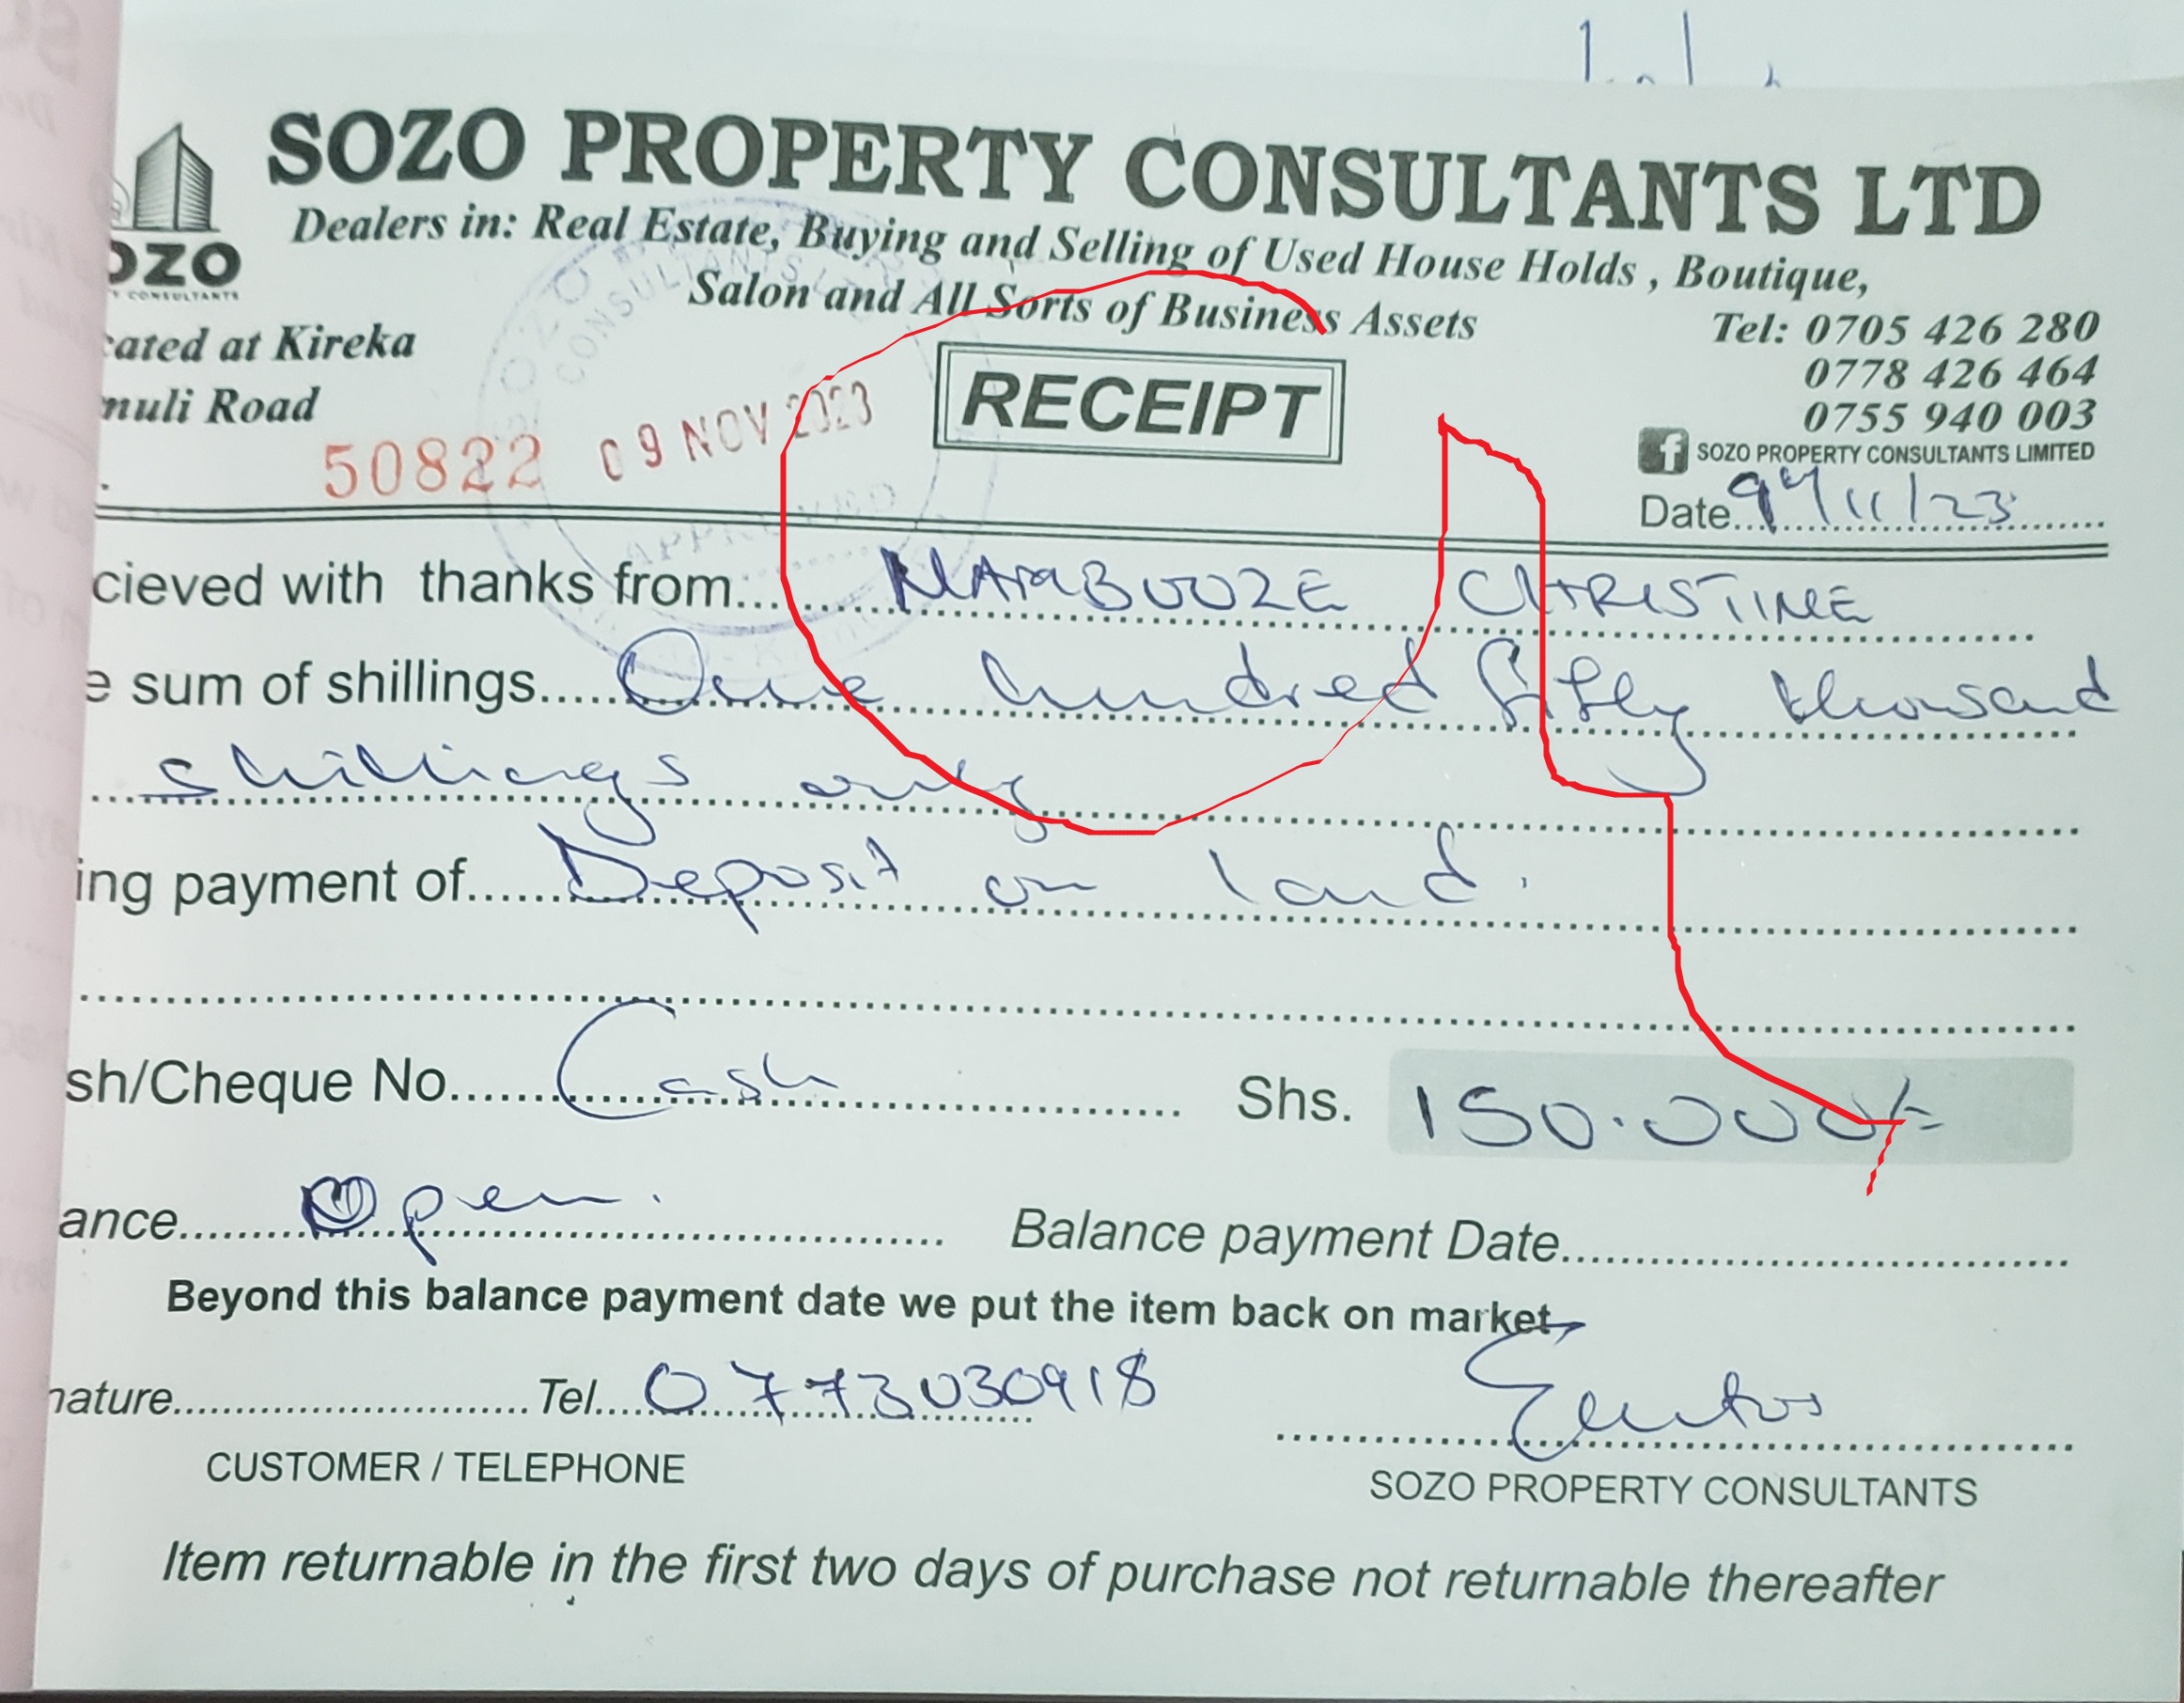 SOZO PROPERTY CONSULTANTS LTD
Dealers in: Real Estate, Buying and Selling of Used House Holds , Boutique,
Salon and All Sorts of Business Assets
OZO
CONSULTANTS
cated at Kireka
muli Road
Tel: 0705 426 280
0778 426 464
0755 940 003
SOZO PROPERTY CONSULTANTS LIMITED
RECEIPT
50822
09 NOV 2023
SOZO
CONSULTANTS LTD
APPROVED
Date 9th/11/23
cieved with thanks from NAMBOOZE CHRISTINE
e sum of shillings One hundred fifty thousand
shillings only
ing payment of Deposit on land.
sh/Cheque No. Cash Shs. 150.000/=
ance Open. Balance payment Date
Beyond this balance payment date we put the item back on market
nature Tel 0773030918
CUSTOMER / TELEPHONE
SOZO PROPERTY CONSULTANTS
Item returnable in the first two days of purchase not returnable thereafter